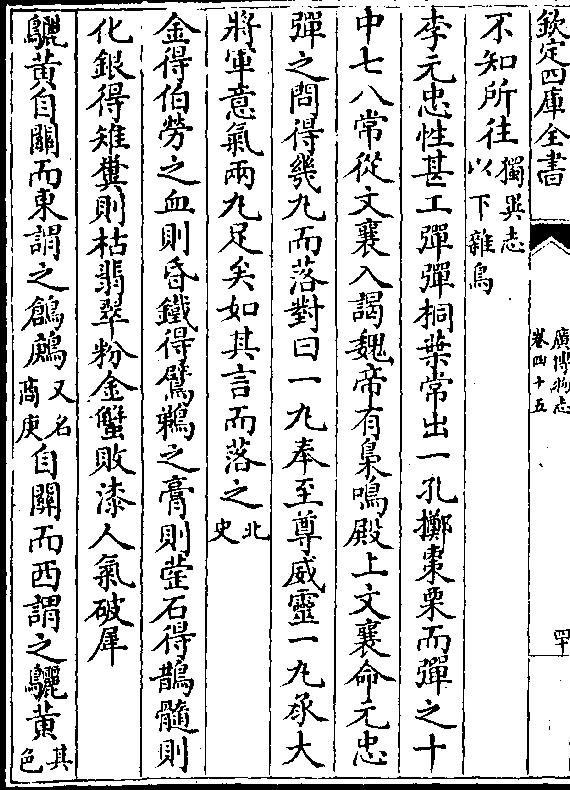 欽定四庫全書
廣博物志
卷四十五
不知所往獨異志
以下雜鳥
李元忠性甚工彈彈桐葉常出一孔擲棗栗而彈之十
中七八常從文襄入謁魏帝有梟鳴殿上文襄命元忠
彈之問得幾丸而落對曰一丸奉至尊威靈一丸承大
將軍意氣兩丸足矣如其言而落之北史
金得伯勞之血則昏鐵得鷿鵜之膏則瑩石得鵲髓則
化銀得雉糞則枯翡翠粉金蟹敗漆人氣破犀
鸝黃自關而東謂之鶬鶊又名商庚自關而西謂之鸝黃其色